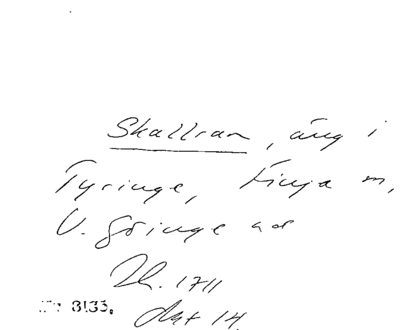 Skallran, äng i
Tyringe, Finja sn,
V. Göinge hd
Lh. 1711
Akt 14.
8133.